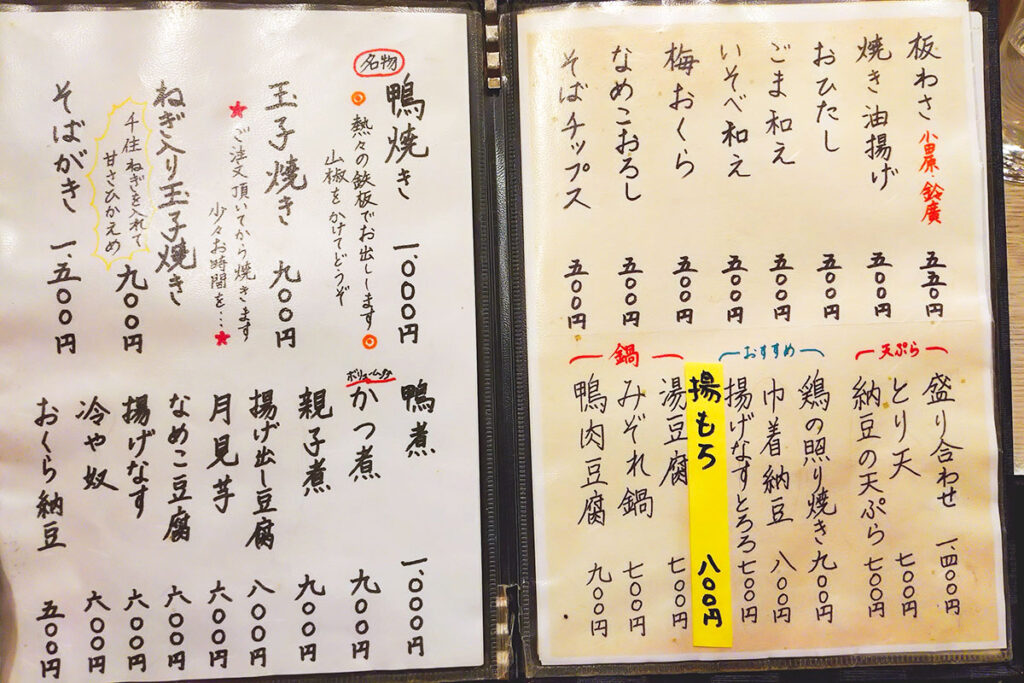 板わさ 小田原・鈴廣 五五〇円
焼き油揚げ 五〇〇円
おひたし 五〇〇円
ごま和え 五〇〇円
いそべ和え 五〇〇円
梅おくら 五〇〇円
なめこおろし 五〇〇円
そばチップス 五〇〇円
天ぷら
盛り合わせ 一、四〇〇円
とり天 七〇〇円
納豆の天ぷら 七〇〇円
おすすめ
鶏の照り焼き 九〇〇円
巾着納豆 八〇〇円
揚げなすとろろ 七〇〇円
揚もろ 八〇〇円
鍋
湯豆腐 七〇〇円
みぞれ鍋 七〇〇円
鴨肉豆腐 九〇〇円
名物
鴨焼き 一、〇〇〇円
熱々の鉄板でお出しします
山椒をかけてどうぞ
玉子焼き 九〇〇円
★ご注文頂いてから焼きます
少々お時間を…★
ねぎ入り玉子焼き 九〇〇円
千住ねぎを入れて
甘さひかえめ
そばがき 一、五〇〇円
鴨煮 一、〇〇〇円
ボリューム大
かつ煮 九〇〇円
親子煮 九〇〇円
揚げ出し豆腐 八〇〇円
月見芋 六〇〇円
なめこ豆腐 六〇〇円
揚げなす 六〇〇円
冷や奴 六〇〇円
おくら納豆 五〇〇円